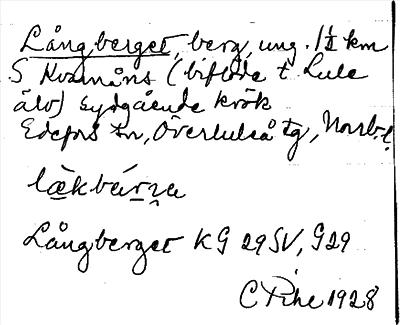 Långberget, berg, ung. 1½ km
S Kvarnåns (biflöde t. Lule
älv) sydgående krök
Edefors sn, Överluleå tg, Norrb. l.
Långberget KG 29 SV, G29
1928